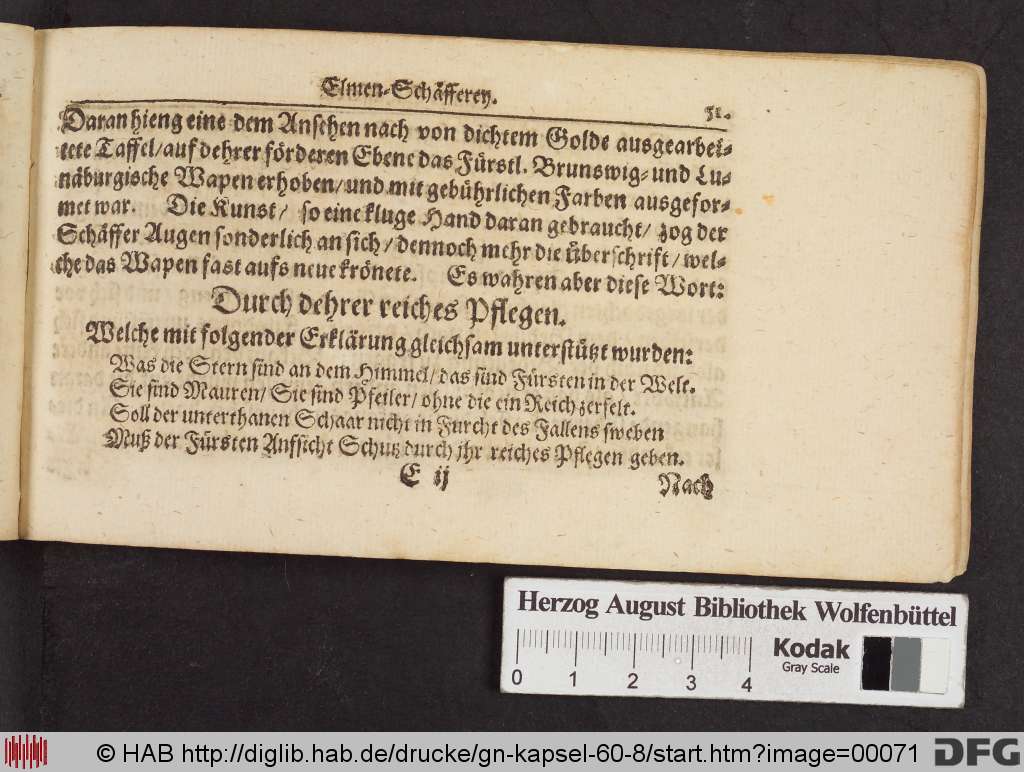 Elmen-Schäfferey.
51.
Daran hieng eine dem Ansehen nach von dichtem Golde ausgearbei-
tete Taffel/ auf dehrer förderen Ebene das Fürstl. Brunswig- und Lu-
näburgische Wapen erhoben/ und mit gebührlichen Farben ausgefor-
met war. Die Kunst/ so eine kluge Hand daran gebraucht/ zog der
Schäffer Augen sonderlich an sich/ dennoch mehr die überschrift/ wel-
che das Wapen fast aufs neue krönete. Es wahren aber diese Wort:
Durch dehrer reiches Pflegen.
Welche mit folgender Erklärung gleichsam unterstützt wurden:
Was die Stern sind an dem Himmel/ das sind Fürsten in der Welt.
Sie sind Mauren/ Sie sind Pfeiler/ ohne die ein Reich zerfelt.
Soll der unterthanen Schaar nicht in Furcht des Fallens sweben
Muß der Fürsten Aufsicht Schutz durch jhr reiches Pflegen geben.
E ij
Nach
Herzog August Bibliothek Wolfenbüttel
Kodak
Gray Scale
0 1 2 3 4
© HAB http://diglib.hab.de/drucke/gn-kapsel-60-8/start.htm?image=00071
DFG